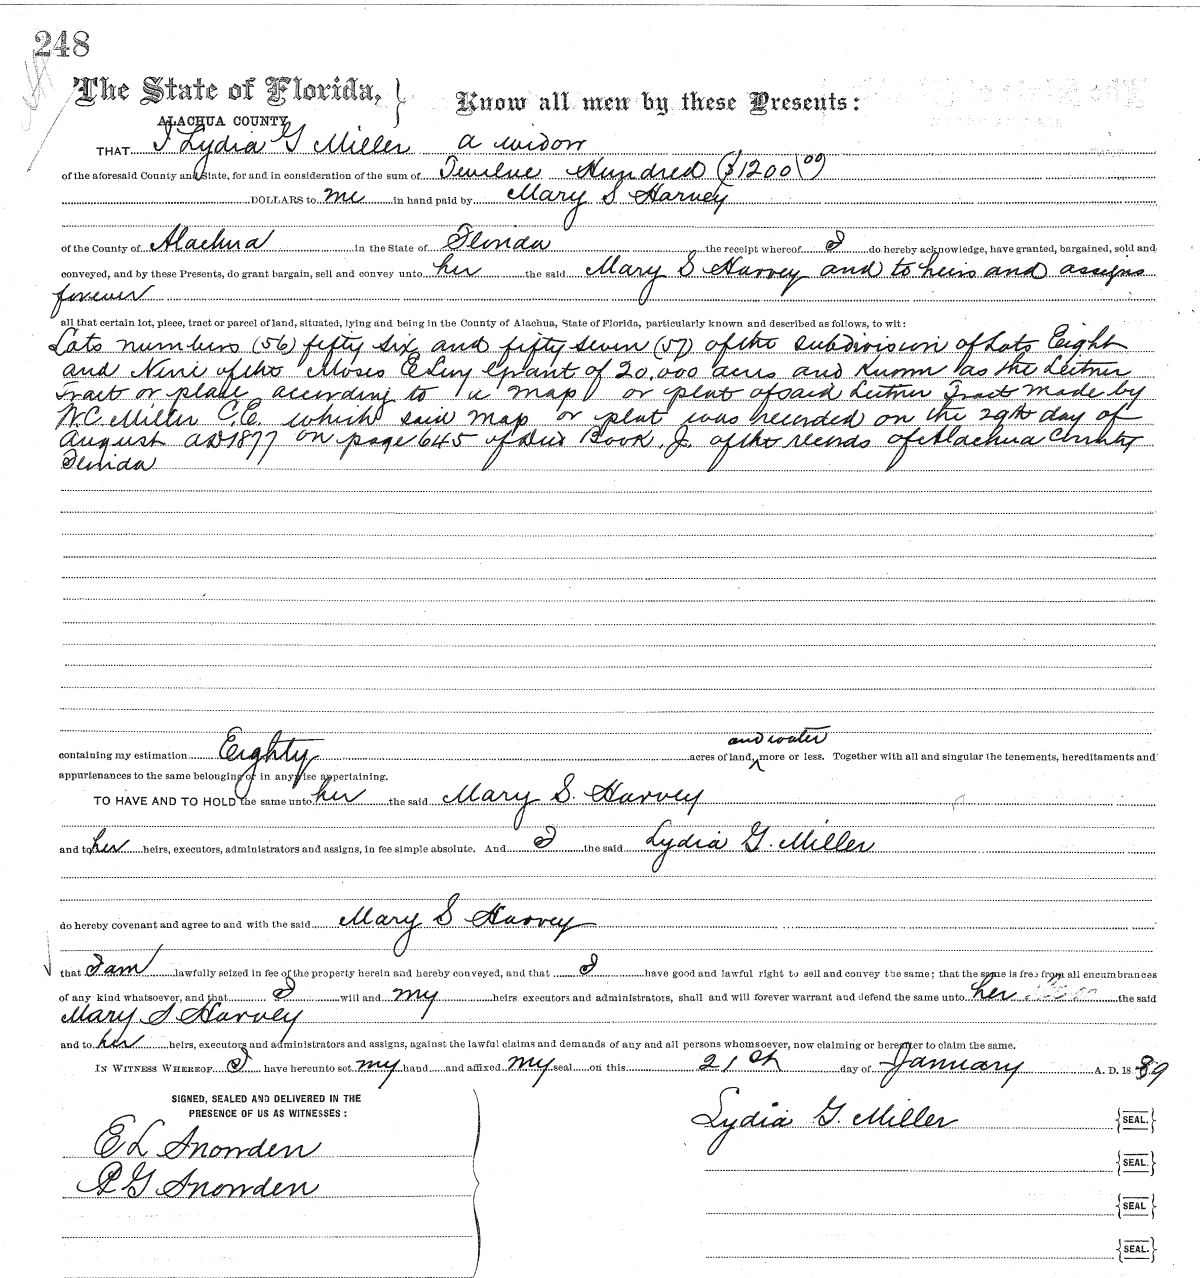 248
The State of Florida, } Know all men by these Presents:
ALACHUA COUNTY,
THAT I Lydia G Miller a widow
of the aforesaid County and State, for and in consideration of the sum of Twelve Hundred ($1200 00)
DOLLARS to me in hand paid by Mary S Harvey
of the County of Alachua in the State of Florida the receipt whereof I do hereby acknowledge, have granted, bargained, sold and
conveyed, and by these Presents, do grant bargain, sell and convey unto her the said Mary S Harvey and to heirs and assigns
forever
all that certain lot, piece, tract or parcel of land, situated, lying and being in the County of Alachua, State of Florida, particularly known and described as follows, to wit:
Lots numbers (56) fifty six and fifty seven (57) of the subdivision of Lots Eight
and Nine of the Moses E Levy grant of 20.000 acres and known as the Leitner
Tract or place according to a map or plat of said Leitner Tract made by
W.C. Miller C.E. which said map or plat was recorded on the 29th day of
August AD 1877 on page 645 of Deed Book J. of the records of Alachua County
Florida
containing my estimation Eighty acres of land, and water more or less. Together with all and singular the tenements, hereditaments and
appurtenances to the same belonging or in anywise appertaining.
TO HAVE AND TO HOLD the same unto her the said Mary S. Harvey
and to her heirs, executors, administrators and assigns, in fee simple absolute. And I the said Lydia G. Miller
do hereby covenant and agree to and with the said Mary S Harvey
that I am lawfully seized in fee of the property herein and hereby conveyed, and that I have good and lawful right to sell and convey the same; that the same is free from all encumbrances
of any kind whatsoever, and that I will and my heirs executors and administrators, shall and will forever warrant and defend the same unto her the said
Mary S Harvey
and to her heirs, executors and administrators and assigns, against the lawful claims and demands of any and all persons whomsoever, now claiming or hereafter to claim the same.
IN WITNESS WHEREOF I have hereunto set my hand and affixed my seal on this 21th day of January A. D. 1889
SIGNED, SEALED AND DELIVERED IN THE
PRESENCE OF US AS WITNESSES:
Lydia G. Miller {SEAL.}
E L Snowden
{SEAL.}
P G Snowden
{SEAL}
{SEAL.}